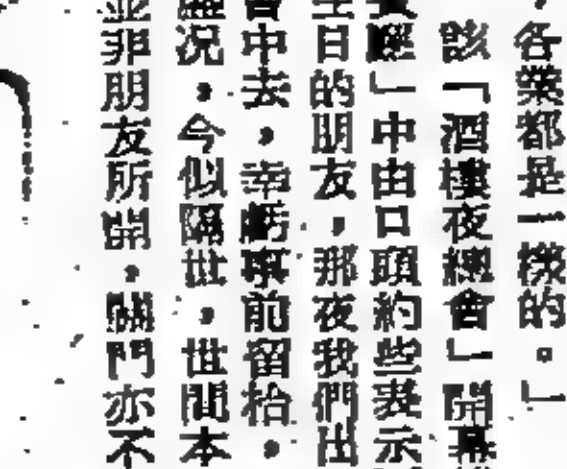 ，各業都是一樣的。」
該「酒樓夜總會」開幕
」中由口頭約些表示
日的朋友，那夜我們出
會中去，幸虧事前留枱，
盛况，今似隔世，世間本
並非朋友所開，關門亦不